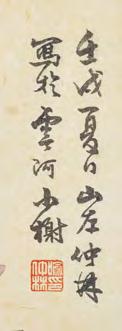 壬戌夏日山左仲林
寫於雲河小榭